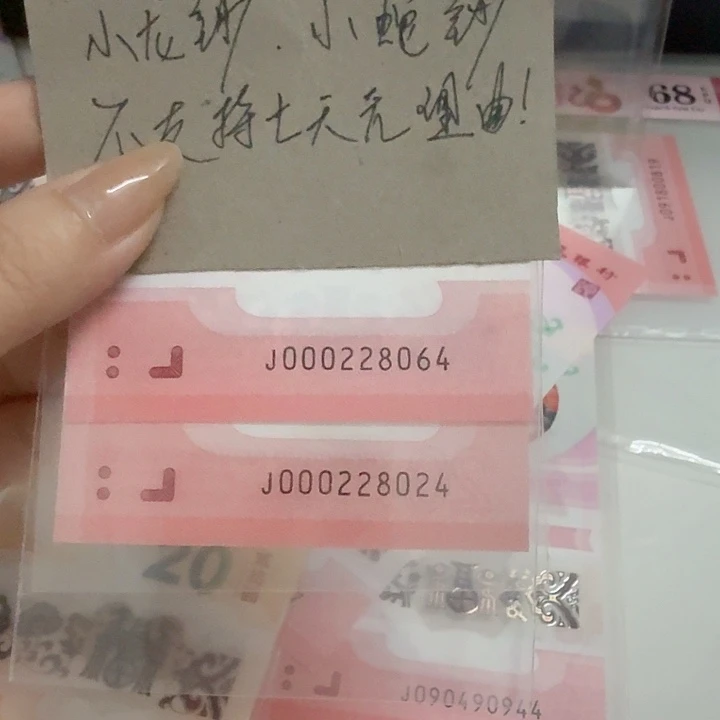 小龙钞、小蛇钞
不支持七天无理由!
68
J091800819
J000228064
J000228024
20
J090490944